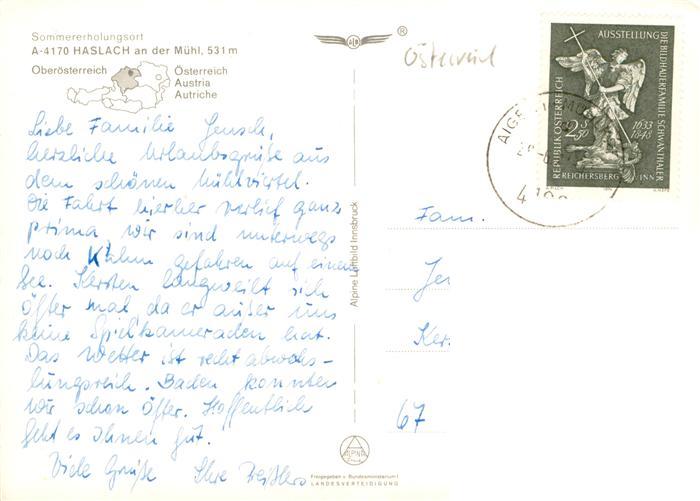 Sommererholungsort
A-4170 HASLACH an der Mühl, 531 m
Oberösterreich
Österreich
Austria
Autriche
Liebe Familie Jensch,
herzliche Urlaubsgrüße aus
dem schönen Mühlviertel.
Die Fahrt hierher verlief ganz
prima wir sind unterwegs
noch Kahn gefahren auf einem
See. Kersten langweilt sich
öfter mal da er außer uns
keine Spielkameraden hat.
Das Wetter ist recht abwechs-
lungsreich. Baden konnten
wir schon öfter. Hoffentlich
geht es Ihnen gut.
Viele Grüße Ihre
Alpine Luftbild Innsbruck
ALPINE
Freigegeben v. Bundesministerium f.
LANDESVERTEIDIGUNG
®
Österreich
AUSSTELLUNG
DIE BILDHAUERFAMILIE SCHWANTHALER
REPUBLIK ÖSTERREICH
2 S 50
1633
1848
REICHERSBERG / INN
AIGEN
Fam.
Jen
Ker.
67